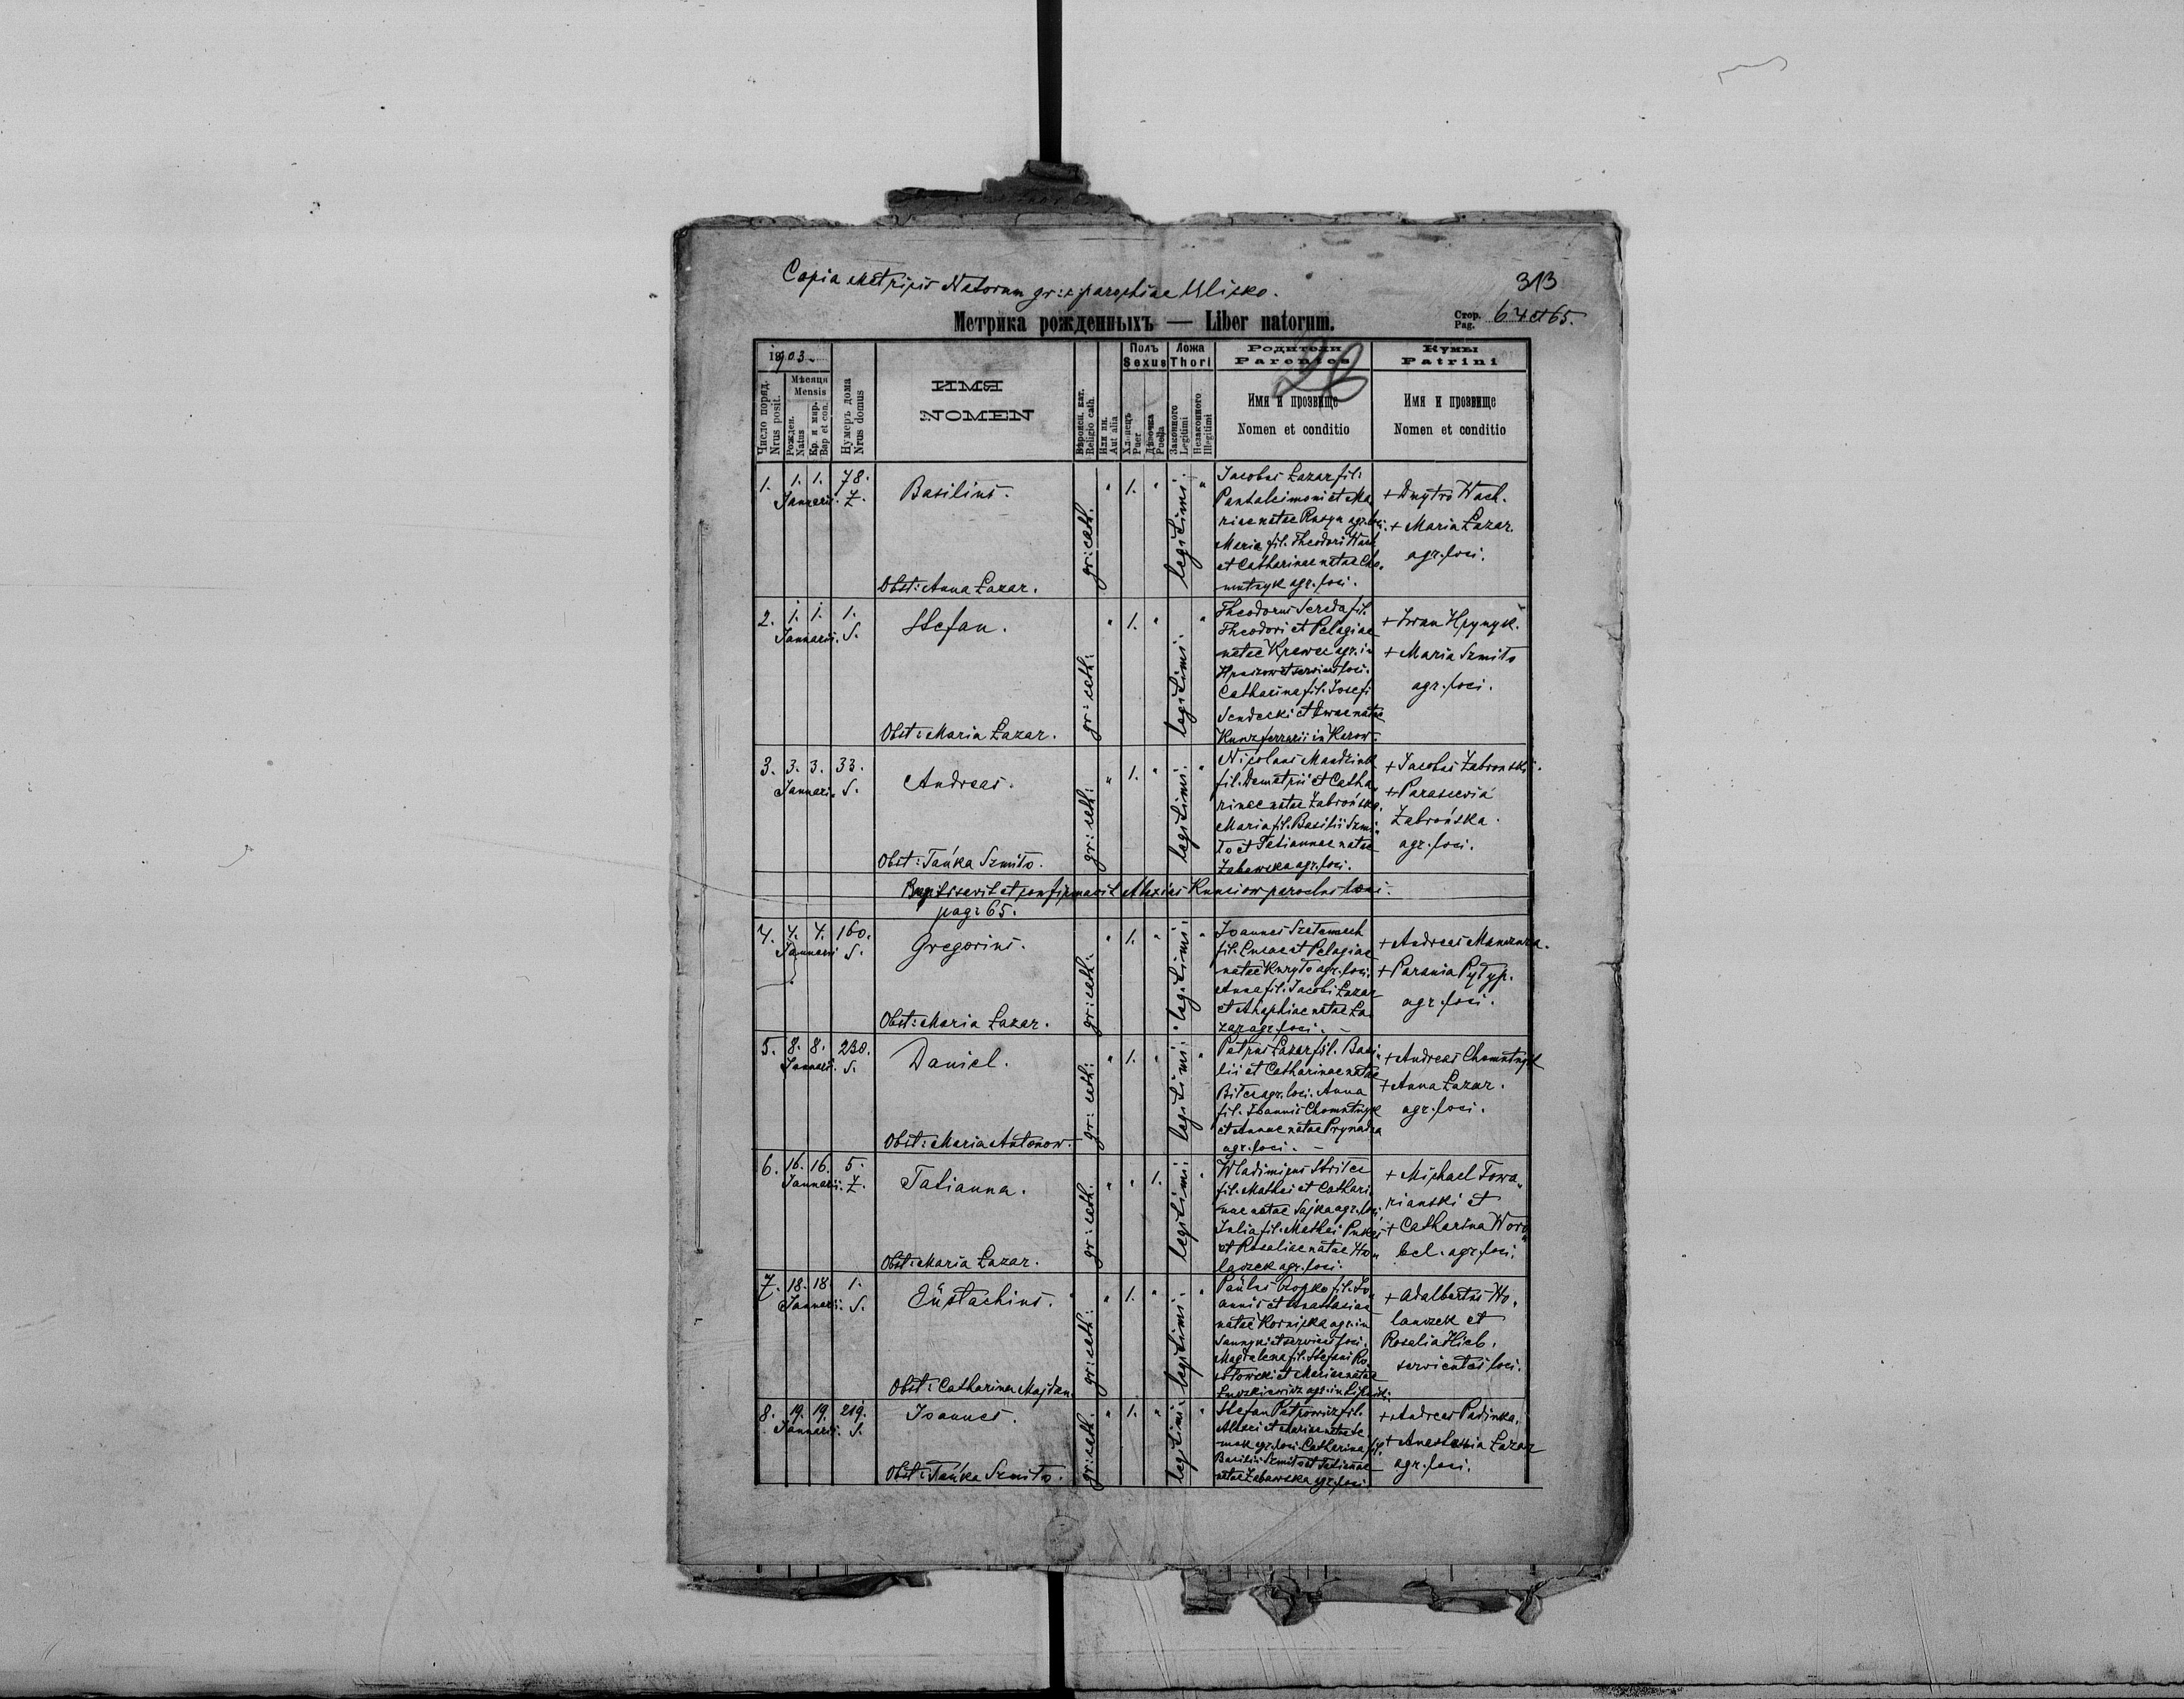 Copia Metricis Natorum gr: c: parochiae Ulicko.
313
Метрика рожденныхъ — Liber natorum.
Стор. Pag. 64 et 65.
1903.
Число поряд. Nrus posit.
Мѣсяця Mensis
Рожден. Natus
Кр. и мvр. Bap et con.
Нумеръ дома Nrus domus
ИМЯ
NOMEN
Вѣроисп. кат. Religio cath.
Или ин. Aut alia
Полъ Sexus
Хлопецъ Puer
Дѣвочка Puella
Ложа Thori
Законного Legitimi
Незаконного Illegitimi
Родители
Parentes
28
Имя и прозвище
Nomen et conditio
Кумы
Patrini
Имя и прозвище
Nomen et conditio
1. 1. 1. 78.
Januarii. Z.
Basilius.
Obst: Anna Łazar.
gr: cath.
" 1. "
legitimi. "
Jacobus Łazar fil.
Pantaleimoni et Ma
riae natae Rusyn agr. loci.
Maria fil. Theodori Wach
et Catharinae natae Cho
mutnyk agr. loci.
+ Dmytro Wach.
+ Maria Łazar.
agr. loci.
2. 1. 1. 1.
Januarii. S.
Stefan.
Obst: Maria Łazar.
gr: cath:
" 1. "
legitimi. "
Theodorus Sereda fil.
Theodori et Pelagiae
natae Krawec agr. in
et serviens loci.
Catharina fil. Josefi
Sendecki et Evae natae
Kunz ferrarii in Karow.
+ Iwan
+ Maria Szmiło
agr. loci.
3. 3. 3. 33.
Januarii. S.
Andreas.
Obst: Tańka Szmiło.
gr: cath:
" 1. "
legitimi. "
Nicolaus
fil. Demetrii et Catha
rinae natae Żabrońska.
Maria fil. Basilii Szmi
ło et Tatiannae natae
Zabawska agr. loci.
+ Jacobus Żabroński.
+ Parascevia
Żabrońska.
agr. loci.
Baptisavit et confirmavit Alexius Kunciow parochus loci.
pag: 65.
4. 4. 4. 160.
Januarii S.
Gregorius.
Obst: Maria Łazar.
gr: cath.
" 1. "
legitimi. "
Joannes
fil. Lucae et Pelagiae
natae Kuryło agr. loci.
Anna fil. Jacobi Łazar
et Ahaphiae natae Ła
zar agr. loci. —
+ Andreas
+ Parania Pyłyp.
agr. loci.
5. 8. 8. 230.
Januarii. S.
Daniel.
Obst: Maria Antonow.
gr: cath:
" 1. "
legitimi. "
Petrus Łazar fil. Basi
lii et Catharinae natae
Bilec agr. loci. Anna
fil. Joannis Chomutnyk
et Annae natae Prynada
agr. loci. —
+ Andreas Chomutnyk
+ Anna Łazar.
agr. loci.
6. 16. 16. 5.
Januarii. Z.
Tatianna.
Obst: Maria Łazar.
gr: cath.
" " 1.
legitimi. "
Wladimirus Strilec
fil. Mathei et Cathari
nae natae Sajka agr. loci.
Julia fil. Mathei
et Rosaliae natae Ho
laczek agr. loci.
+ Michael Towa
rianski et
+ Catharina Woro
bel. agr. loci.
7. 18. 18. 1.
Januarii. S.
Eüstachius.
Obst: Catharina Majdan.
gr: cath:
" 1. "
legitimi. "
Paülus fil. Jo
annis et Anastasiae
natae Kornicka agr. in
et serviens loci.
Magdalena fil. Stefani Ko
złowski et Mariae natae
agr. in
+ Adalbertus Ho
laczek et
Rosalia Hlib.
servientes loci.
8. 19. 19. 219.
Januarii. S.
Joannes.
Obst: Tańka Szmiło.
gr: cath.
" 1. "
legitimi. "
Stefan Petrowicz fil.
Alexii et Mariae natae Se
mak agr. loci. Catharina fil.
Basilii Szmiło et Tatiannae
natae Zabawska agr. loci.
+ Andreas Padinka.
+ Anastasia Łazar
agr. loci.